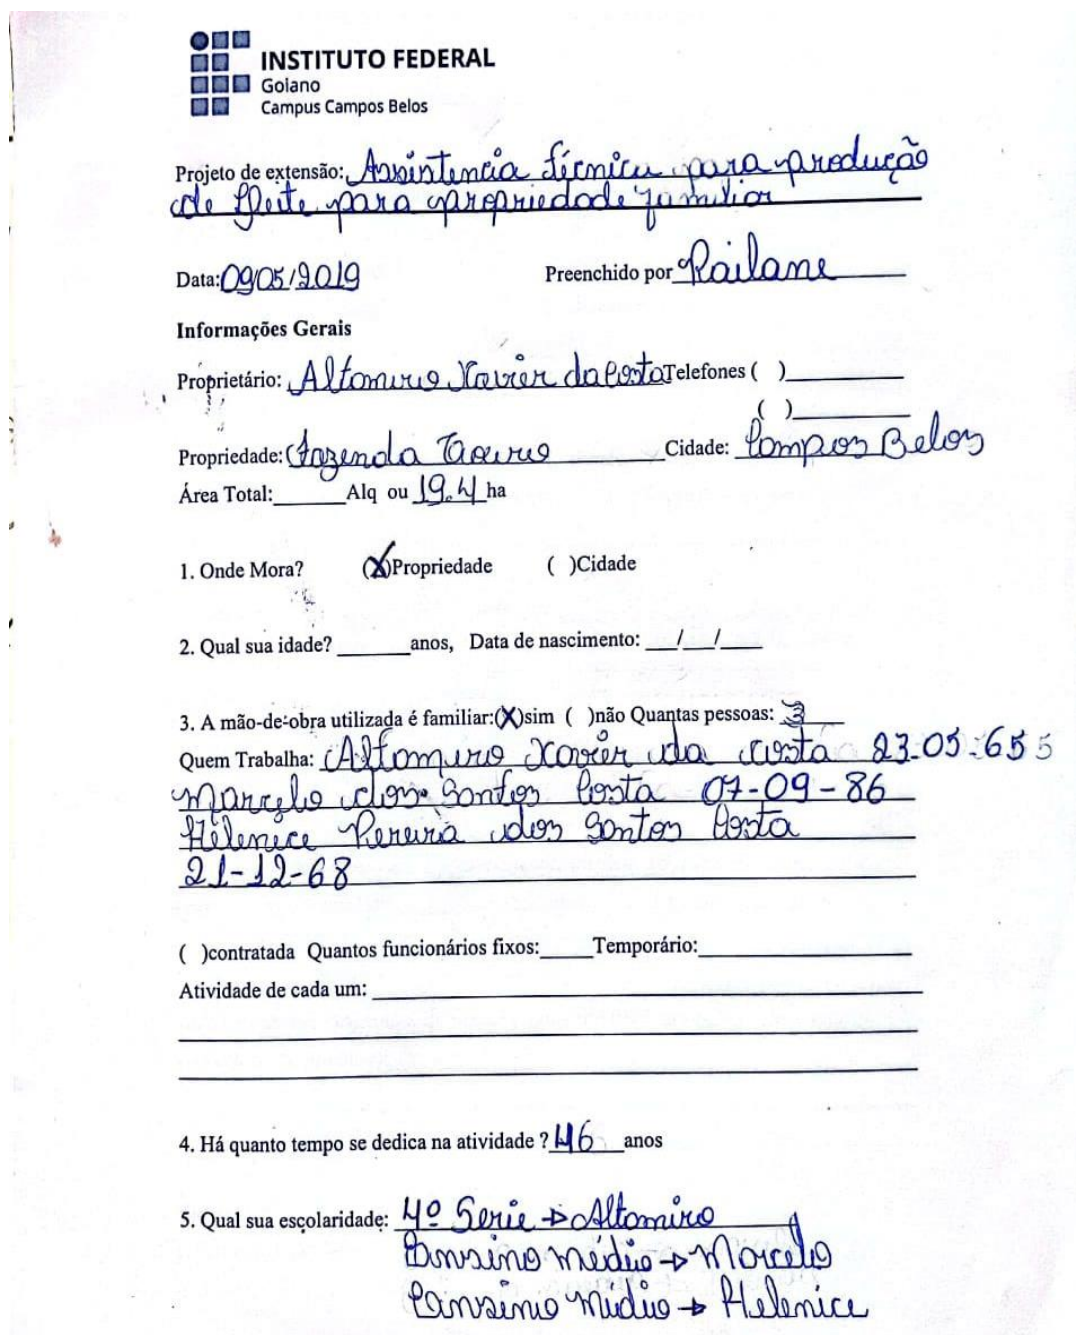 INSTITUTO FEDERAL
Goiano
Campus Campos Belos
Projeto de extensão: Assistencia técnica para produção
de leite para propriedade familiar
Data: 09/05/2019 Preenchido por Railane
Informações Gerais
Proprietário: Altomiro Xavier da Costa Telefones ( )
( )
Propriedade: Fazenda Cidade: Campos Belos
Área Total:______Alq ou 19.4 ha
1. Onde Mora? (X)Propriedade ( )Cidade
2. Qual sua idade? ______anos, Data de nascimento: __/__/__
3. A mão-de-obra utilizada é familiar:(X)sim ( )não Quantas pessoas: 3
Quem Trabalha: Altomiro Xavier da costa 23-05-65 5
Marcelo dos Santos Costa 07-09-86
Helenice Pereira dos Santos Costa
21-12-68
( )contratada Quantos funcionários fixos:____Temporário:
Atividade de cada um:
4. Há quanto tempo se dedica na atividade ? 46 anos
5. Qual sua escolaridade: 4º Serie → Altomiro
Ennsino médio → Marcelo
Ennsino médio → Helenice